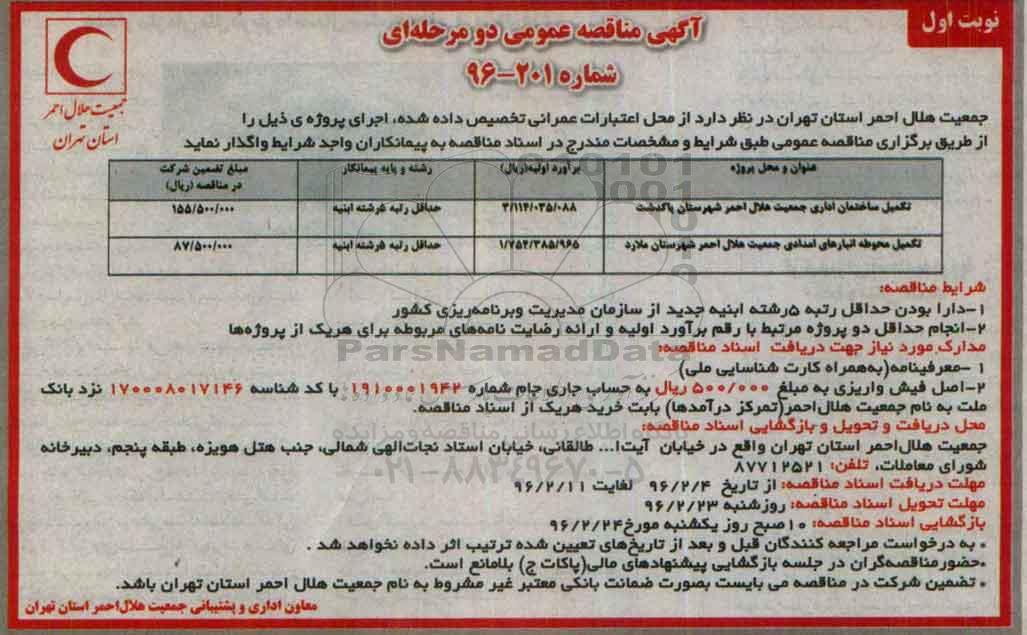 نوبت اول
آگهی مناقصه عمومی دو مرحله‌ای
شماره ۲۰۱-۹۶
جمعیت هلال احمر
استان تهران
جمعیت هلال احمر استان تهران در نظر دارد از محل اعتبارات عمرانی تخصیص داده شده، اجرای پروژه ی ذیل را
از طریق برگزاری مناقصه عمومی طبق شرایط و مشخصات مندرج در اسناد مناقصه به پیمانکاران واجد شرایط واگذار نماید
عنوان و محل پروژه برآورد اولیه(ریال) رشته و پایه پیمانکار مبلغ تضمین شرکت
در مناقصه (ریال)
تکمیل ساختمان اداری جمعیت هلال احمر شهرستان پاکدشت ۳/۱۱۴/۰۳۵/۰۸۸ حداقل رتبه ۵رشته ابنیه ۱۵۵/۵۰۰/۰۰۰
تکمیل محوطه انبارهای امدادی جمعیت هلال احمر شهرستان ملارد ۱/۷۵۲/۳۸۵/۹۶۵ حداقل رتبه ۵رشته ابنیه ۸۷/۵۰۰/۰۰۰
شرایط مناقصه:
۱-دارا بودن حداقل رتبه ۵رشته ابنیه جدید از سازمان مدیریت وبرنامه‌ریزی کشور
۲-انجام حداقل دو پروژه مرتبط با رقم برآورد اولیه و ارائه رضایت نامه‌های مربوطه برای هریک از پروژه‌ها
ParsNamadData
مدارک مورد نیاز جهت دریافت اسناد مناقصه:
۱ -معرفینامه(به‌همراه کارت شناسایی ملی)
۲-اصل فیش واریزی به مبلغ ۵۰۰/۰۰۰ ریال به حساب جاری جام شماره ۱۹۱۰۰۰۱۹۴۲ با کد شناسه ۱۷۰۰۰۸۰۱۷۱۴۶ نزد بانک
ملت به نام جمعیت هلال‌احمر(تمرکز درآمدها) بابت خرید هریک از اسناد مناقصه.
محل دریافت و تحویل و بازگشایی اسناد مناقصه:
جمعیت هلال‌احمر استان تهران واقع در خیابان آیت‌ا... طالقانی، خیابان استاد نجات‌الهی شمالی، جنب هتل هویزه، طبقه پنجم، دبیرخانه
شورای معاملات، تلفن: ۸۷۷۱۲۵۲۱
۰۲۱-۸۸۳۴۹۶۷۰-۵
مهلت دریافت اسناد مناقصه: از تاریخ ۹۶/۲/۴ لغایت ۹۶/۲/۱۱
مهلت تحویل اسناد مناقصه: روزشنبه ۹۶/۲/۲۳
بازگشایی اسناد مناقصه: ۱۰صبح روز یکشنبه مورخ۹۶/۲/۲۴
• به درخواست مراجعه کنندگان قبل و بعد از تاریخ‌های تعیین شده ترتیب اثر داده نخواهد شد .
•حضورمناقصه‌گران در جلسه بازگشایی پیشنهادهای مالی(پاکات ج) بلامانع است.
• تضمین شرکت در مناقصه می بایست بصورت ضمانت بانکی معتبر غیر مشروط به نام جمعیت هلال احمر استان تهران باشد.
معاون اداری و پشتیبانی جمعیت هلال‌احمر استان تهران